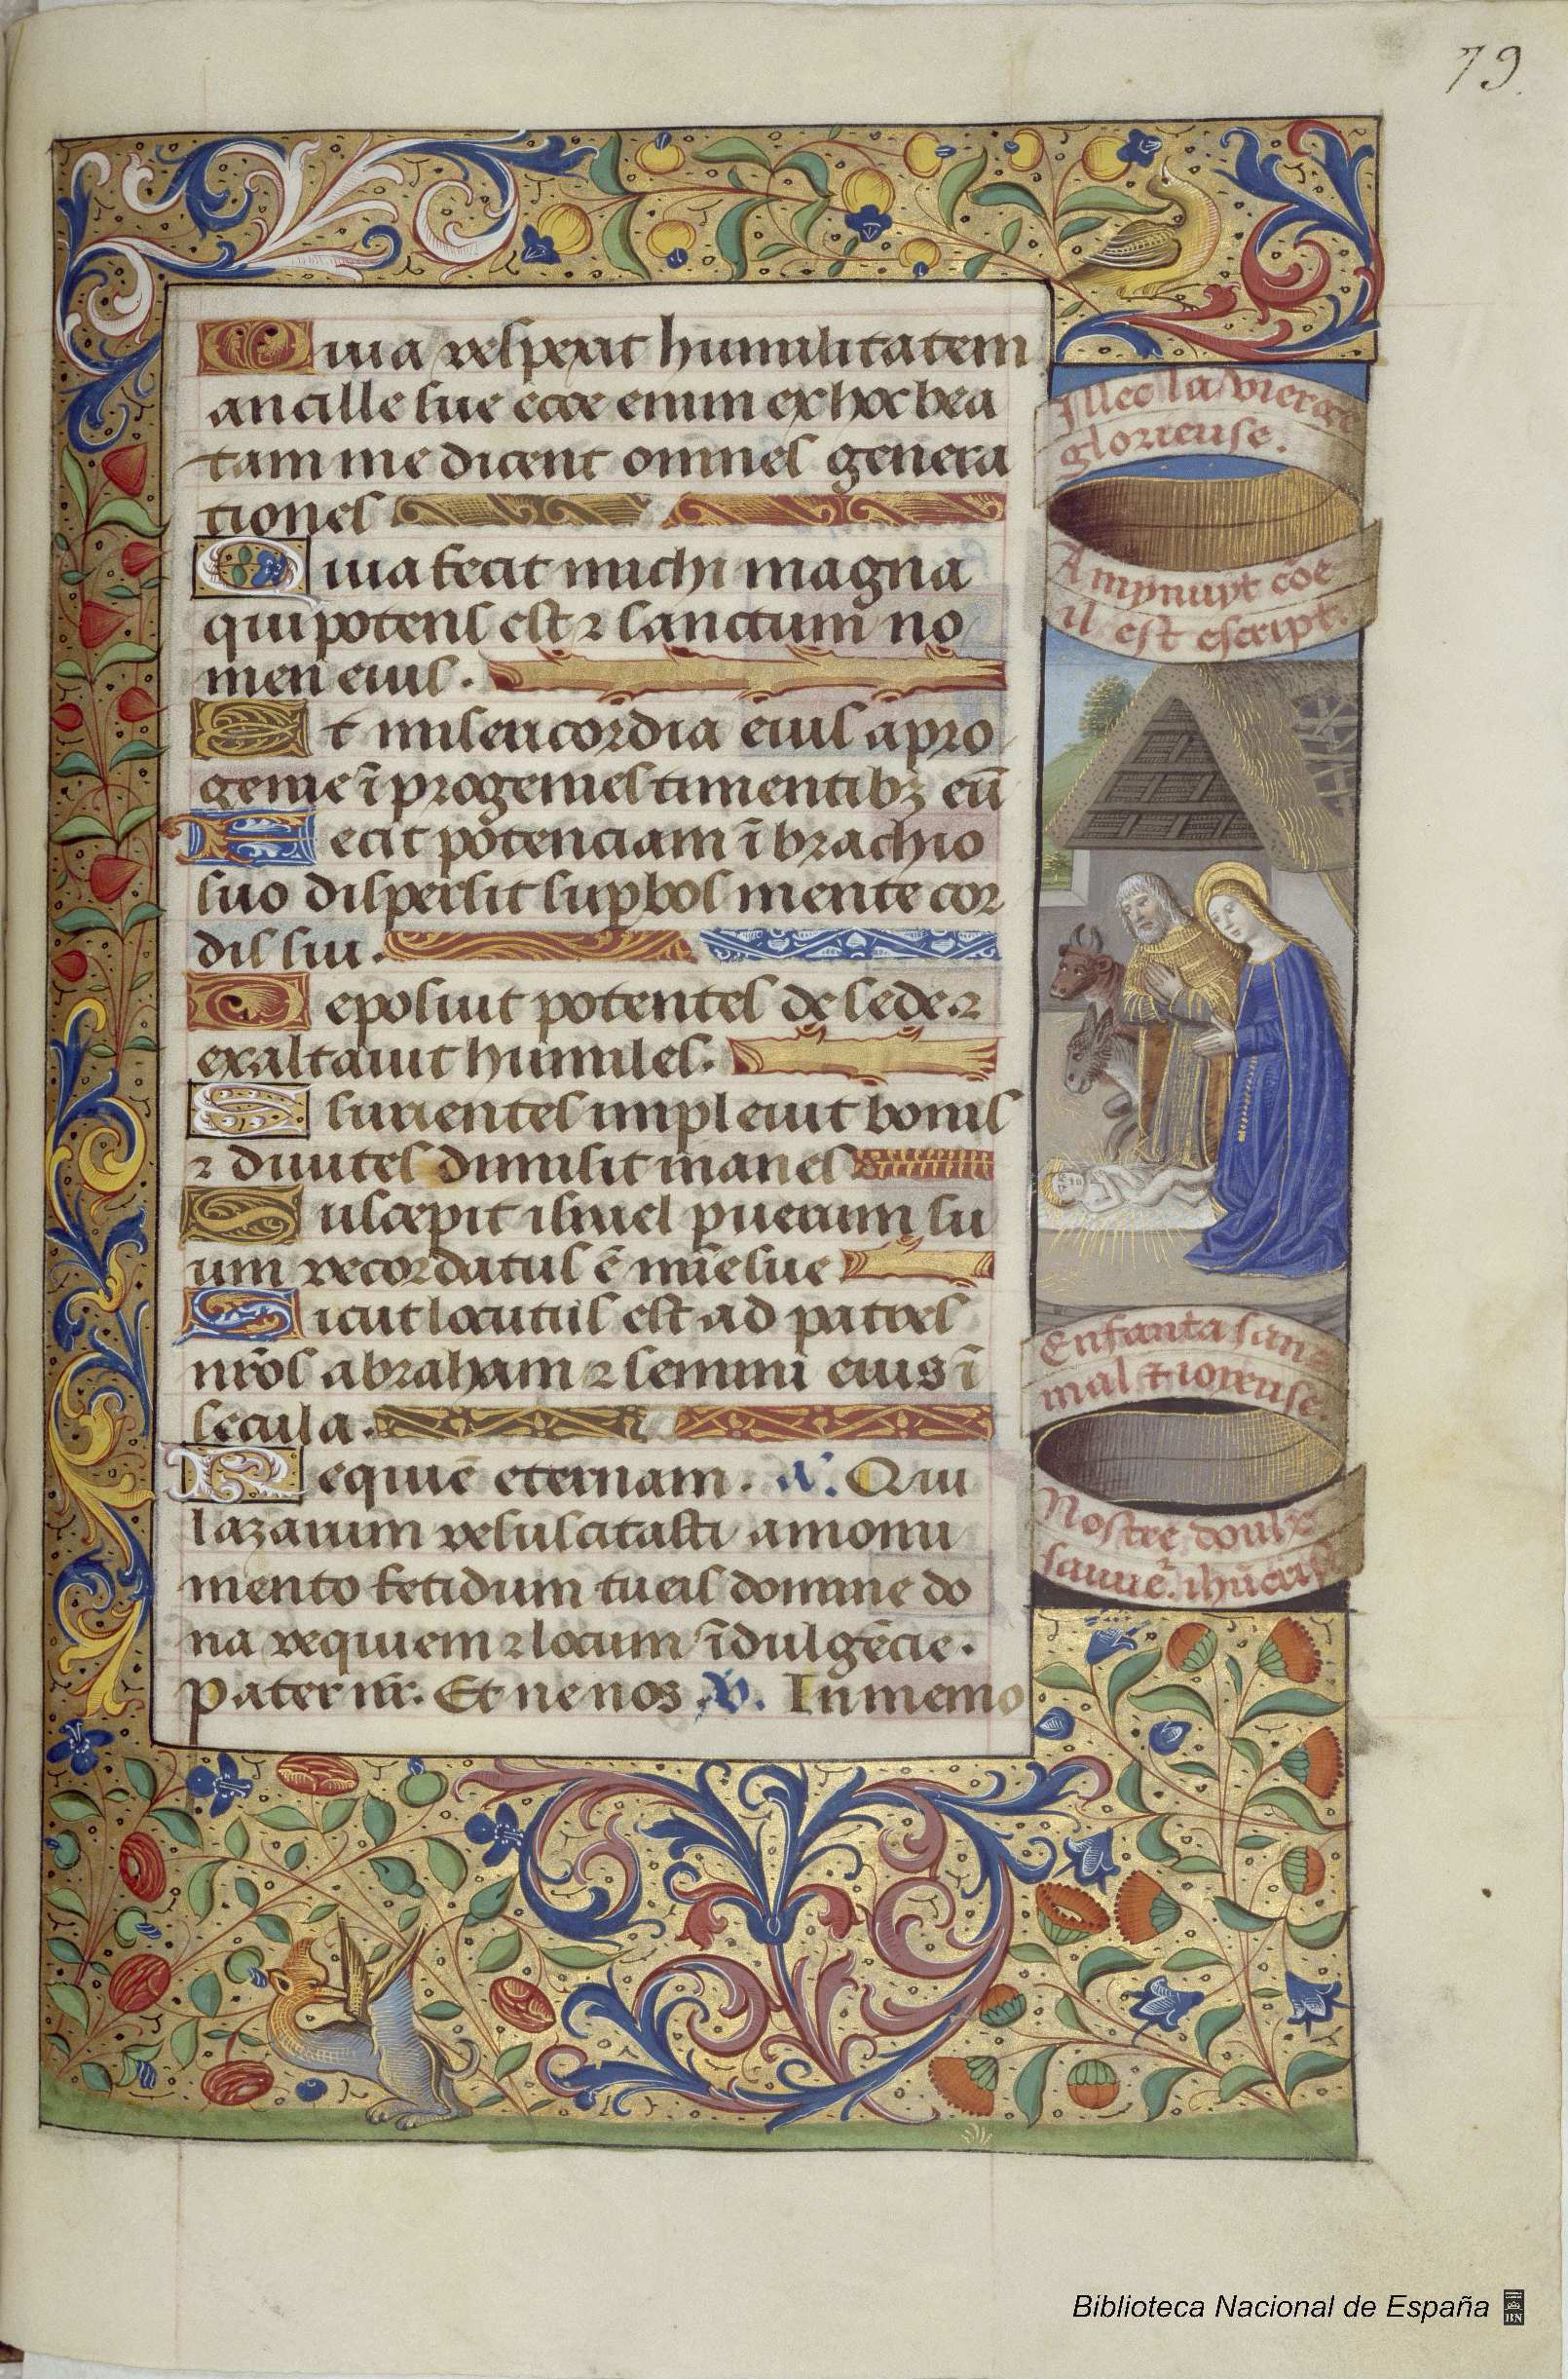 79.
Quia respexit humilitatem
ancille sue ecce enim ex hoc bea
tam me dicent omnes genera
tiones
Quia fecit michi magna
qui potens est ⁊ sanctum no
men eius.
Et misericordia eius a pro
genie ī progenies timentibꝫ eū
Fecit potenciam ī brachio
suo dispersit suꝑbos mente cor
dis sui.
Deposuit potentes de sede ⁊
exaltauit humiles.
Esurientes impleuit bonis
⁊ diuites dimisit inanes
Suscepit israel puerum su
um recordatus ē mīe sue
Sicut locutus est ad patres
nr̄os abraham ⁊ semini eius ī
secula.
Requiē eternam. A. Qui
lazarum resuscitasti a monu
mento fetidum tu eis domine do
na requiem ⁊ locum īdulgēcie.
Pater nr̄. Et ne nos. V. In memo
Illec la vierge
glorieuse.
A mynuyt cōe
il est escript.
Enfanta sans
mal ⁊ ioyeuse.
Nostre doulx
sauue². ihūcrist
Biblioteca Nacional de España
BN